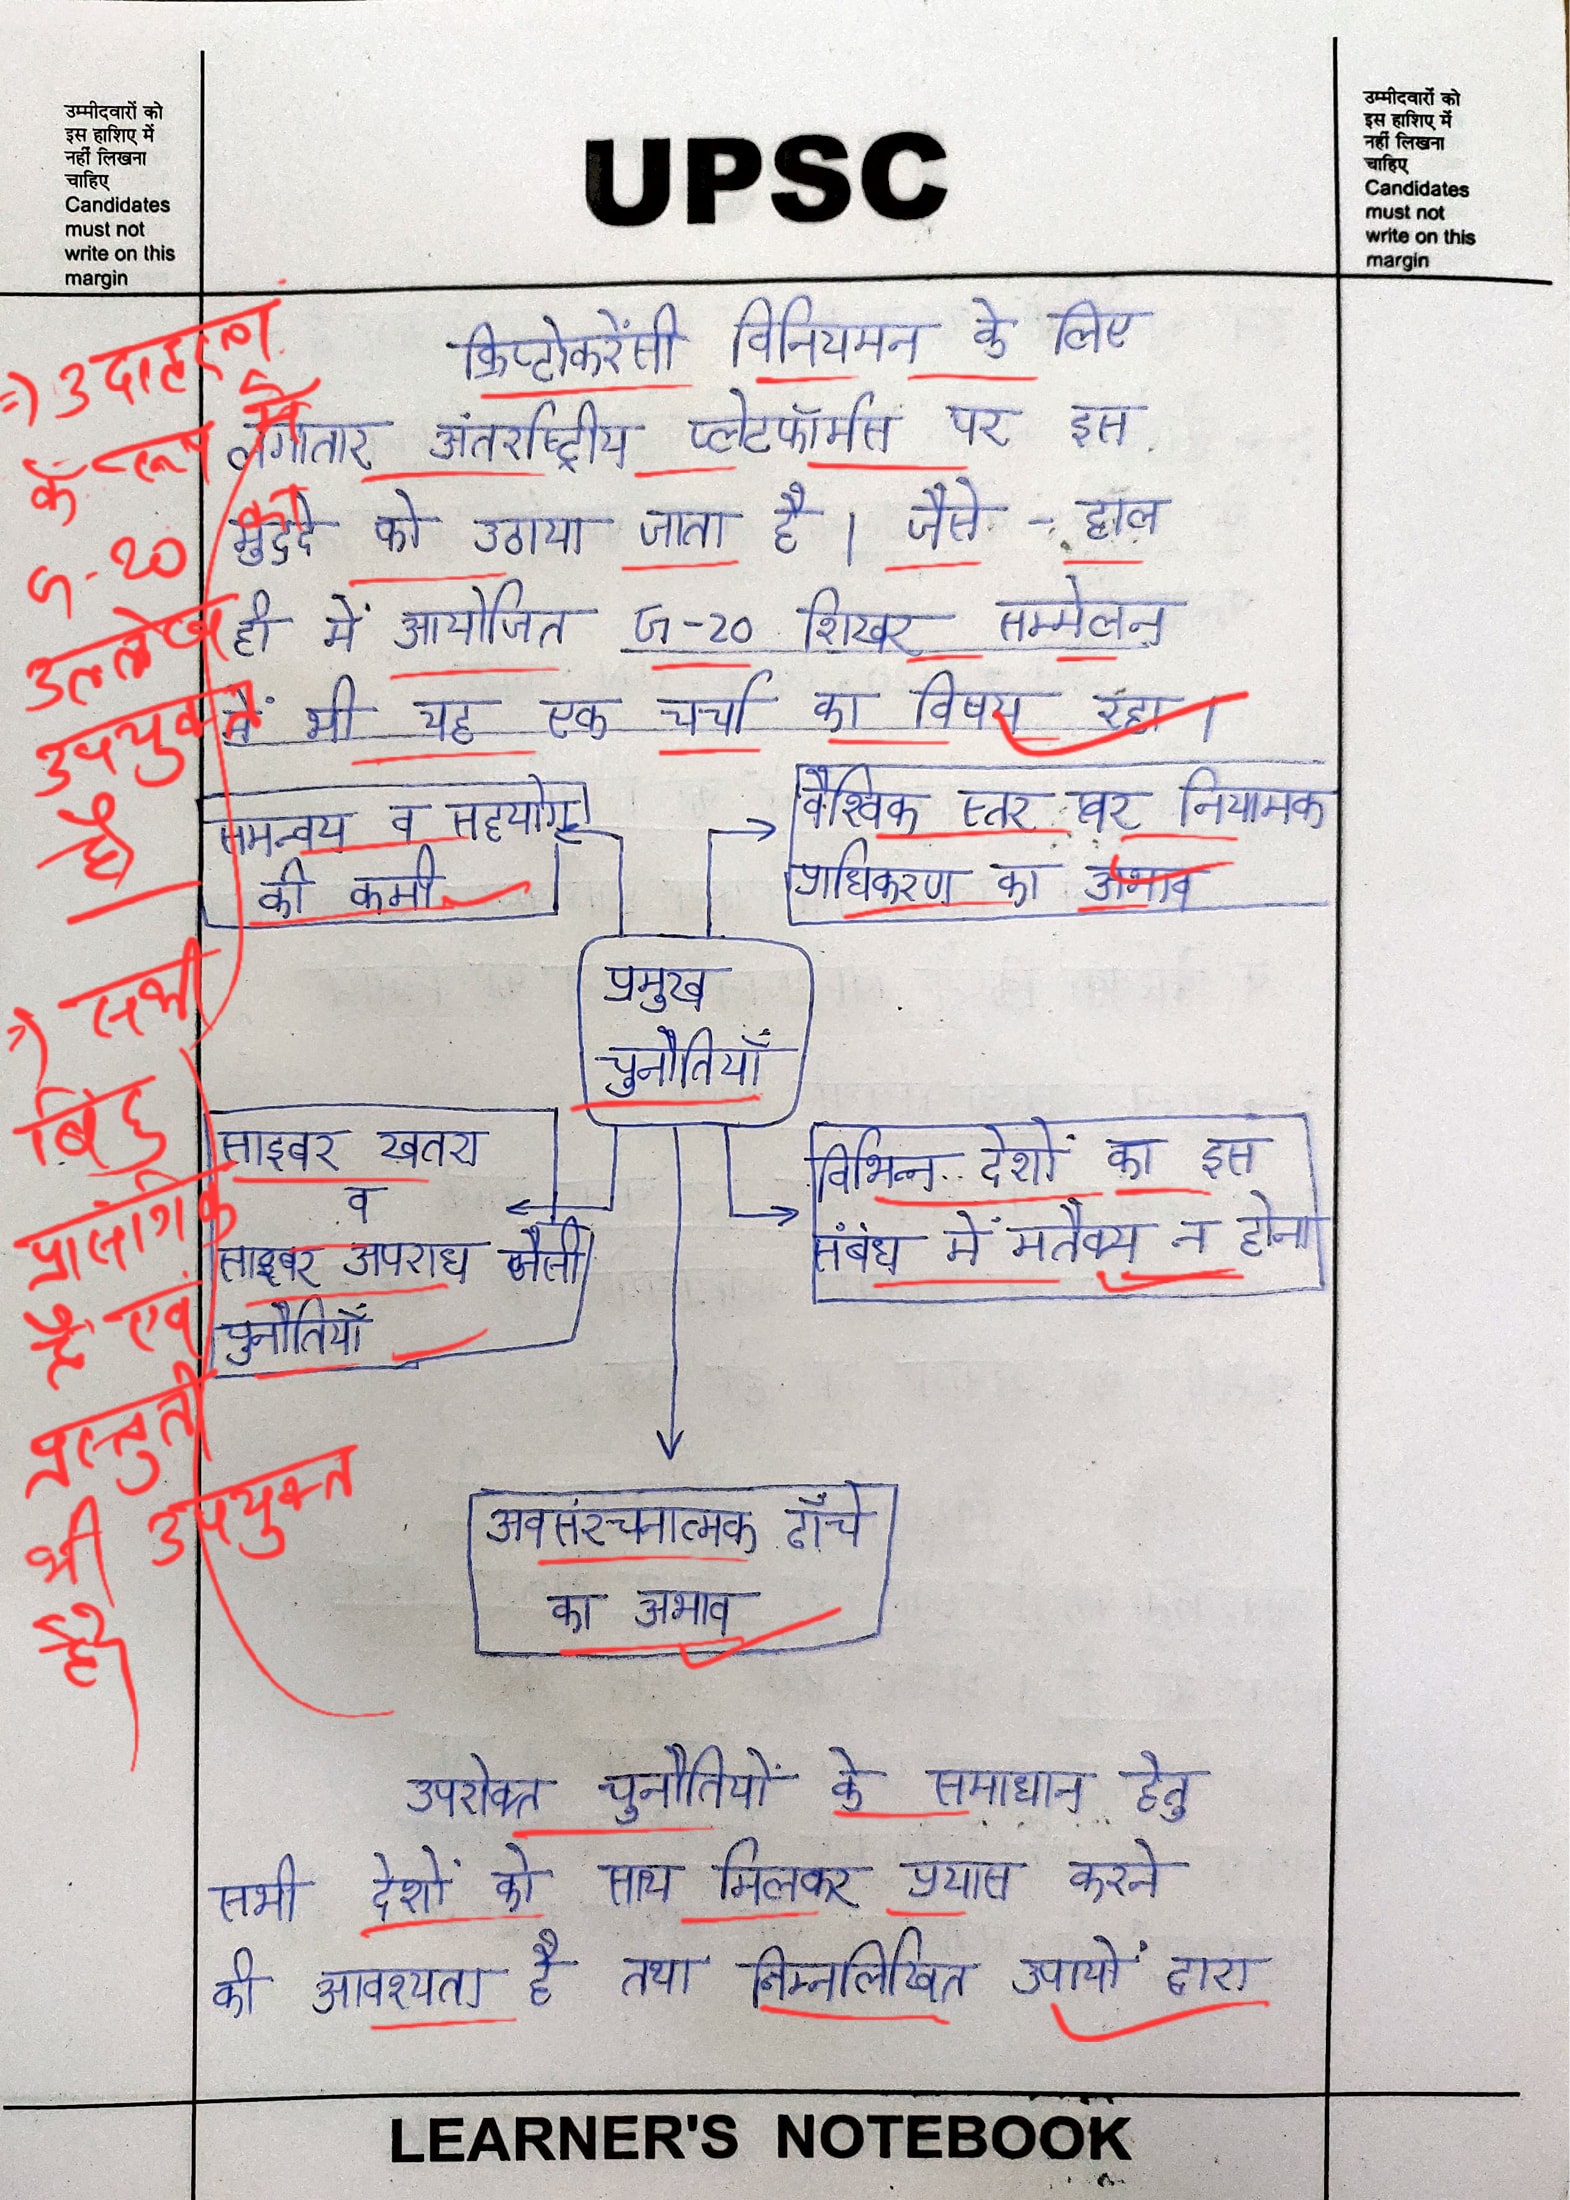 उम्मीदवारों को
इस हाशिए में
नहीं लिखना
चाहिए
Candidates
must not
write on this
margin
UPSC
उम्मीदवारों को
इस हाशिए में
नहीं लिखना
चाहिए
Candidates
must not
write on this
margin
क्रिप्टोकरेंसी विनियमन के लिए
लगातार अंतर्राष्ट्रीय प्लेटफॉर्मस पर इस
मुद्दे को उठाया जाता है। जैसे - हाल
ही में आयोजित G-20 शिखर सम्मेलन
में भी यह एक चर्चा का विषय रहा।
⇒) उदाहरण
के रूप में
G-20 का
उल्लेख
उपयुक्त
है।
समन्वय व सहयोग
की कमी
वैश्विक स्तर पर नियामक
प्राधिकरण का अभाव
प्रमुख
चुनौतियाँ
साइबर खतरा
व
साइबर अपराध जैसी
चुनौतियाँ
विभिन्न देशों का इस
संबंध में मतैक्य न होना
अवसंरचनात्मक ढाँचे
का अभाव
⇒) सभी
बिंदु
प्रासंगिक
है एवं
प्रस्तुती
भी उपयुक्त
है।
उपरोक्त चुनौतियों के समाधान हेतु
सभी देशों को साथ मिलकर प्रयास करने
की आवश्यता है तथा निम्नलिखित उपायों द्वारा
LEARNER'S NOTEBOOK